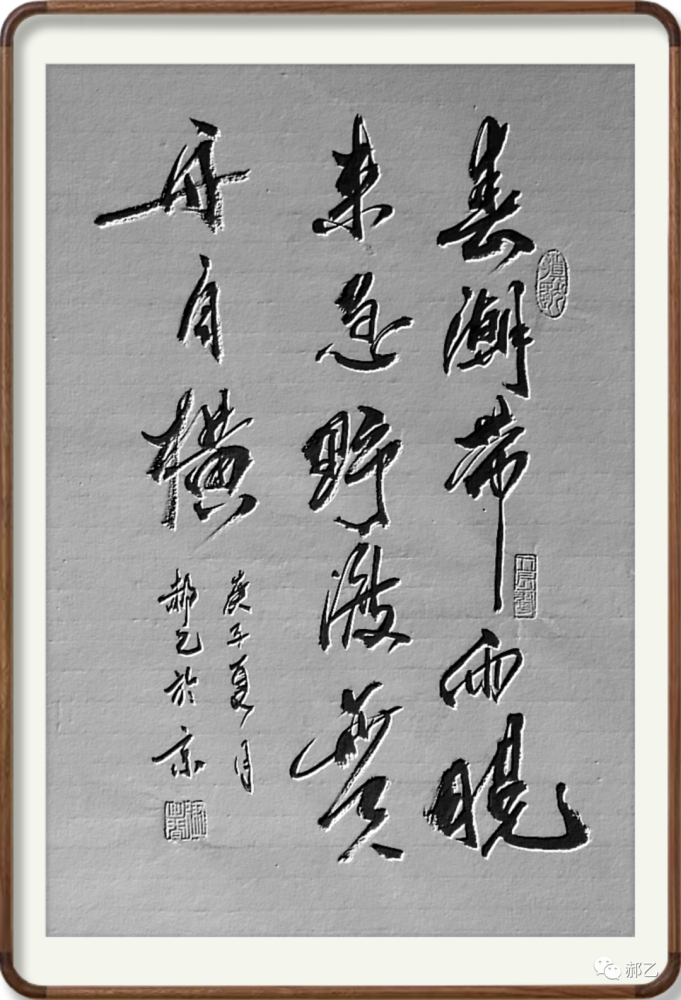 春潮带雨晚
来急野渡無人
舟自横
庚子夏月
郝乙於京
郝乙